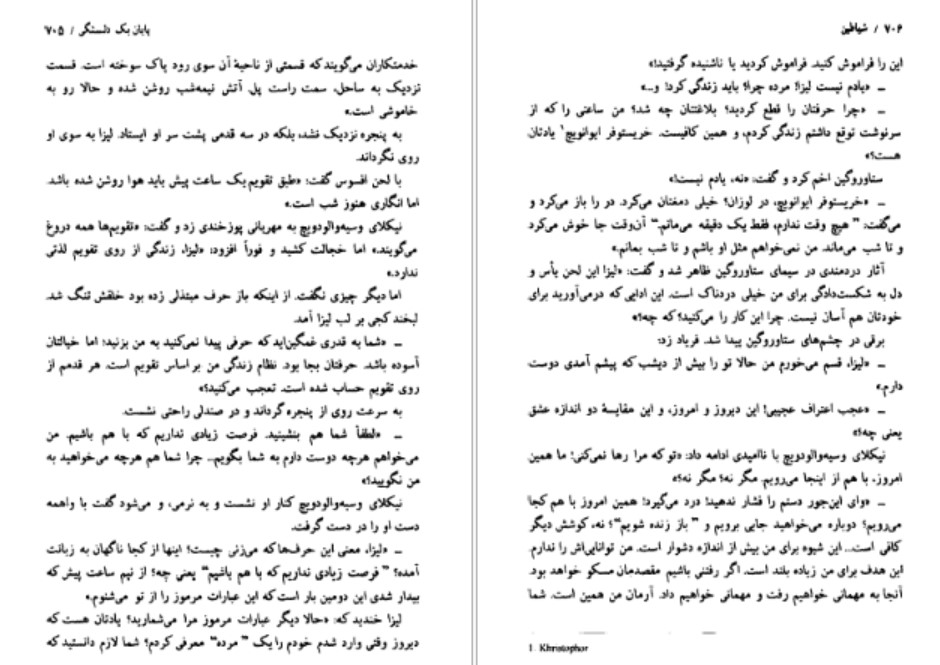 پایان یک دلبستگی / ۷۰۵
خدمتکاران می‌گویند که قسمتی از ناحیهٔ آن سوی رود پاک سوخته است. قسمت
نزدیک به ساحل، سمت راست پل. آتش نیمه‌شب روشن شده و حالا رو به
خاموشی است.»
به پنجره نزدیک نشد، بلکه در سه قدمی پشت سر او ایستاد. لیزا به سوی او
روی نگرداند.
با لحن افسوس گفت: «طبق تقویم یک ساعت پیش باید هوا روشن شده باشد.
اما انگاری هنوز شب است.»
نیکلای وسیه‌والودویچ به مهربانی پوزخندی زد و گفت: «تقویم‌ها همه دروغ
می‌گویند.» اما خجالت کشید و فوراً افزود: «لیزا، زندگی از روی تقویم لذتی
ندارد.»
اما دیگر چیزی نگفت. از اینکه باز حرف مبتذلی زده بود خلقش تنگ شد.
لبخند کجی بر لب لیزا آمد.
ـ «شما به قدری غمگین‌اید که حرفی پیدا نمی‌کنید به من بزنید؛ اما خیالتان
آسوده باشد. حرفتان بجا بود. نظام زندگی من بر اساس تقویم است. هر قدمم از
روی تقویم حساب شده است. تعجب می‌کنید؟»
به سرعت روی از پنجره گرداند و در صندلی راحتی نشست.
ـ «لطفاً شما هم بنشینید. فرصت زیادی نداریم که با هم باشیم. من
می‌خواهم هرچه دوست دارم به شما بگویم... چرا شما هم هرچه می‌خواهید به
من نگویید؟»
نیکلای وسیه‌والودویچ کنار او نشست و به نرمی، و می‌شود گفت با واهمه
دست او را در دست گرفت.
ـ «لیزا، معنی این حرف‌ها که می‌زنی چیست؟ اینها از کجا ناگهان به زبانت
آمده؟ "فرصت زیادی نداریم که با هم باشیم" یعنی چه؟ از نیم ساعت پیش که
بیدار شدی این دومین بار است که این عبارات مرموز را از تو می‌شنوم.»
لیزا خندید که: «حالا دیگر عبارات مرموز مرا می‌شمارید؟ یادتان هست که
دیروز وقتی وارد شدم خودم را یک "مرده" معرفی کردم؟ شما لازم دانستید که
۷۰۶ / شیاطین
این را فراموش کنید. فراموش کردید یا ناشنیده گرفتید!»
ـ «یادم نیست لیزا! مرده چرا؟ باید زندگی کرد! و...»
ـ «چرا حرفتان را قطع کردید؟ بلاغتتان چه شد؟ من ساعتی را که از
سرنوشت توقع داشتم زندگی کردم، و همین کافیست. خریستوفر ایوانویچ¹ یادتان
هست؟»
ستاوروگین اخم کرد و گفت: «نه، یادم نیست!»
ـ «خریستوفر ایوانویچ، در لوزان؟ خیلی دمغتان می‌کرد. در را باز می‌کرد و
می‌گفت: "هیچ وقت ندارم، فقط یک دقیقه می‌مانم." آن‌وقت جا خوش می‌کرد
و تا شب می‌ماند. من نمی‌خواهم مثل او باشم و تا شب بمانم.»
آثار دردمندی در سیمای ستاوروگین ظاهر شد و گفت: «لیزا این لحن یأس و
دل به شکست‌دادگی برای من خیلی دردناک است. این ادایی که درمی‌آورید برای
خودتان هم آسان نیست. چرا این کار را می‌کنید؟ که چه؟»
برقی در چشم‌های ستاوروگین پیدا شد. فریاد زد:
ـ «لیزا، قسم می‌خورم من حالا تو را بیش از دیشب که پیشم آمدی دوست
دارم.»
ـ «عجب اعتراف عجیبی! این دیروز و امروز، و این مقایسهٔ دو اندازه عشق
یعنی چه؟»
نیکلای وسیه‌والودویچ با ناامیدی ادامه داد: «تو که مرا رها نمی‌کنی! ما همین
امروز، با هم از اینجا می‌رویم. مگر نه؟ مگر نه؟»
ـ «وای این‌جور دستم را فشار ندهید! درد می‌گیرد! همین امروز با هم کجا
می‌رویم؟ دوباره می‌خواهید جایی برویم و "باز زنده شویم"؟ نه، کوشش دیگر
کافی است... این شیوه برای من بیش از اندازه دشوار است. من توانایی‌اش را ندارم.
این هدف برای من زیاده بلند است. اگر رفتنی باشیم مقصدمان مسکو خواهد بود.
آنجا به مهمانی خواهیم رفت و مهمانی خواهیم داد. آرمان من همین است. شما
1. Khristophor